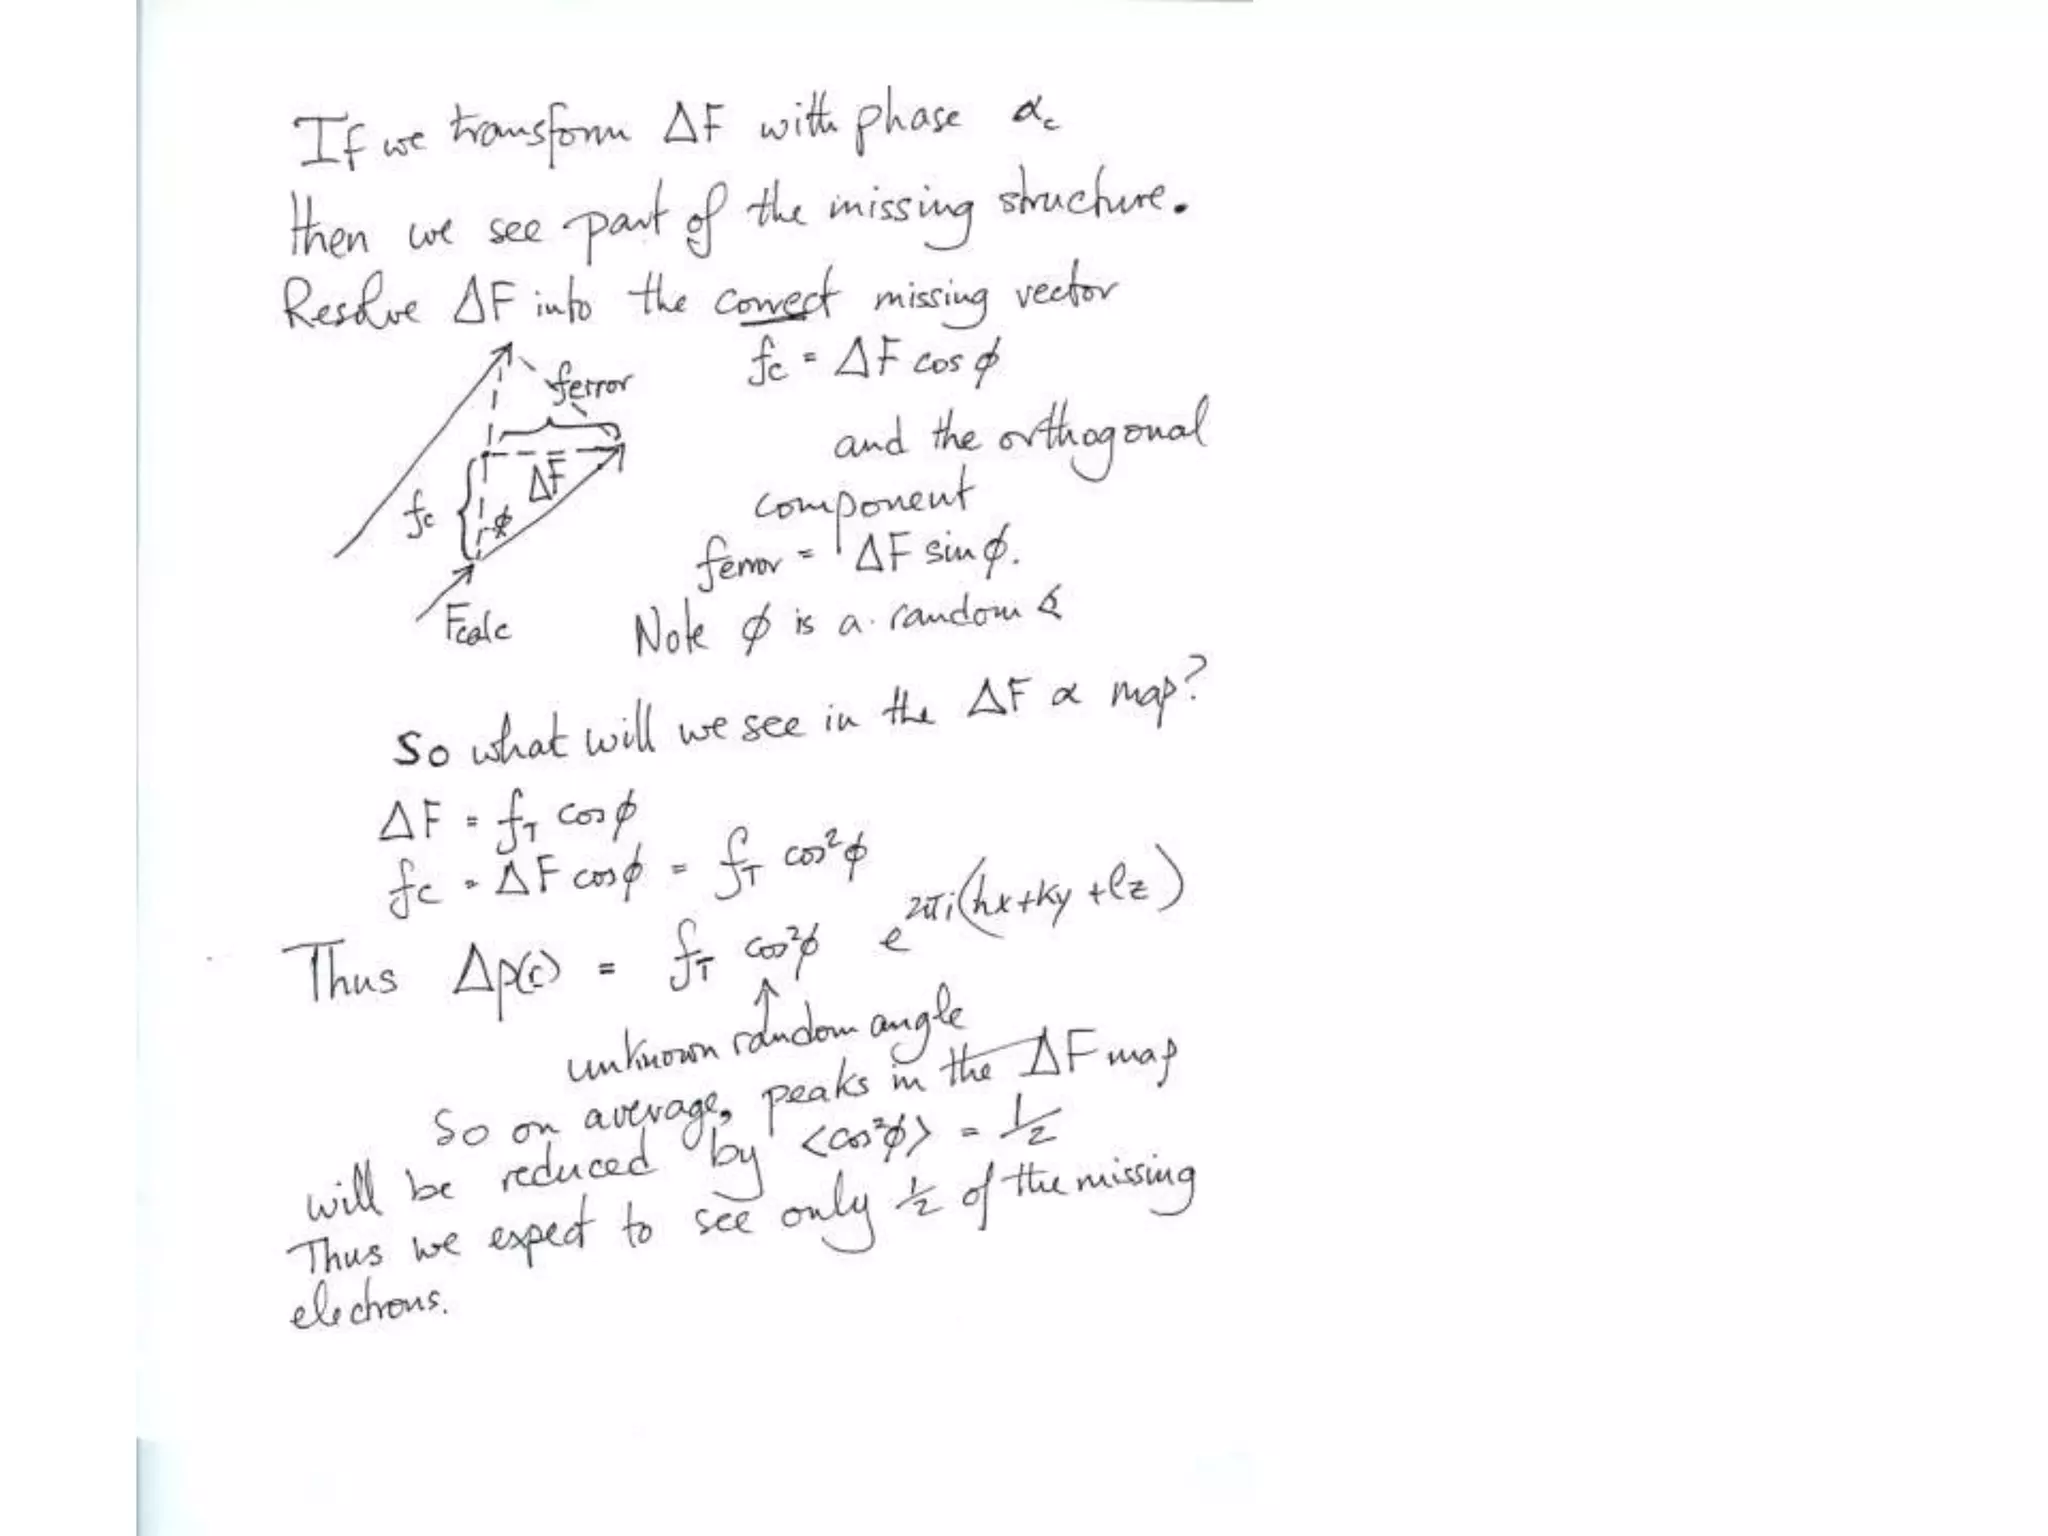 If we transform ΔF with phase α꜀
then we see part of the missing structure.
Resolve ΔF into the correct missing vector
fc = ΔF cos φ
ferror
and the orthogonal
ΔF
fc
φ
component
ferror = ΔF sin φ.
Fcalc
Note φ is a random ∢
So what will we see in the ΔF α map?
ΔF = f_T cos φ
fc = ΔF cos φ = f_T cos²φ
Thus Δρ(r) = f_T cos²φ e^2πi(hx+ky+lz)
unknown random angle
So on average, peaks in the ΔF map
will be reduced by <cos²φ> = 1/2
Thus we expect to see only 1/2 of the missing
electrons.